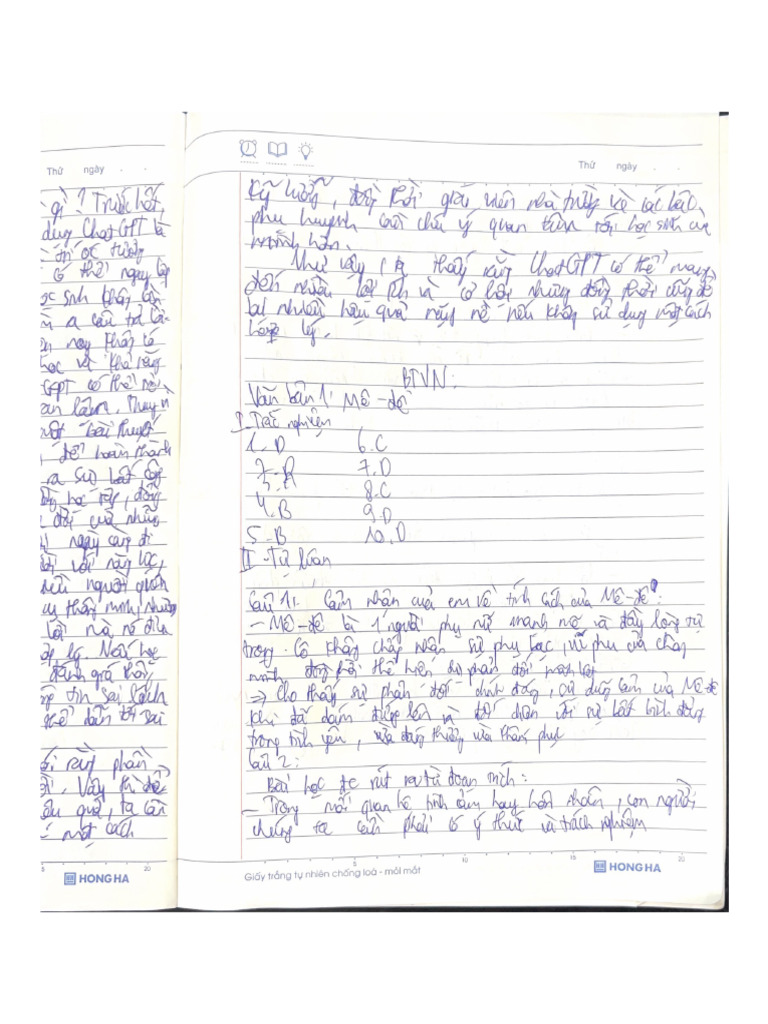 Thứ ngày
gì? Trước hết,
dụng ChatGPT là
trí óc tưởng
có thể ngay lập
học sinh phải cần
ra câu trả lời
nay thấy có
học và khả năng
GPT có thể nói
làm. Thay vì
một bài thuyết
để hoàn thành
ra sự bất
học tập, đồng
đối của những
ngày càng đi
với năng lực,
nếu người quản
cụ thông minh nhưng
lợi mà nó đưa
lý. Ngoài học
đánh giá khởi
tin sai lệch
thể dẫn tới sai
rằng phần
Vậy thì để
quả, ta cần
một cách
5 20
HONG HA
Thứ ngày
kỹ lưỡng, đồng thời giáo viên nhà trường và các bậc
phụ huynh cần chú ý quan tâm tới học sinh của
mình hơn.
Như vậy, ta thấy rằng ChatGPT có thể mang
đến nhiều lợi ích và cơ hội nhưng đồng thời cũng để
lại nhiều hậu quả nặng nề nếu không sử dụng một cách
hợp lý.
BTVN:
Văn bản 1: Mê-đê
I Trắc nghiệm
1. D 6. C
2. A 7. D
3. 8. C
4. B 9. D
5. B 10. D
II - Tự luận
Câu 1: Cảm nhận của em về tính cách của Mê-đê:
- Mê-đê là 1 người phụ nữ mạnh mẽ và đầy lòng tự
trọng. Cô không chấp nhận sự phụ bạc, của chồng
mình đồng thời thể hiện sự phản đối
=> Cho thấy sự phản đối chính đáng, sự dũng cảm của Mê-đê
khi đã dám đứng lên và đối diện với sự bất bình đẳng
trong tình yêu, vừa đáng thương vừa thán phục
Câu 2:
Bài học đc rút ra từ đoạn trích:
- Trong mối quan hệ tình cảm hay hôn nhân, con người
chúng ta cần phải có ý thức và trách nghiệm
5 10 15 20
Giấy trắng tự nhiên chống loá - mỏi mắt
HONG HA